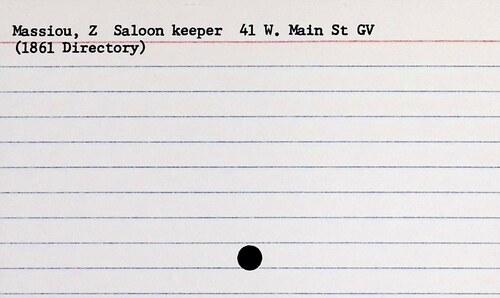 Massiou, Z  Saloon keeper  41 W. Main St GV
(1861 Directory)